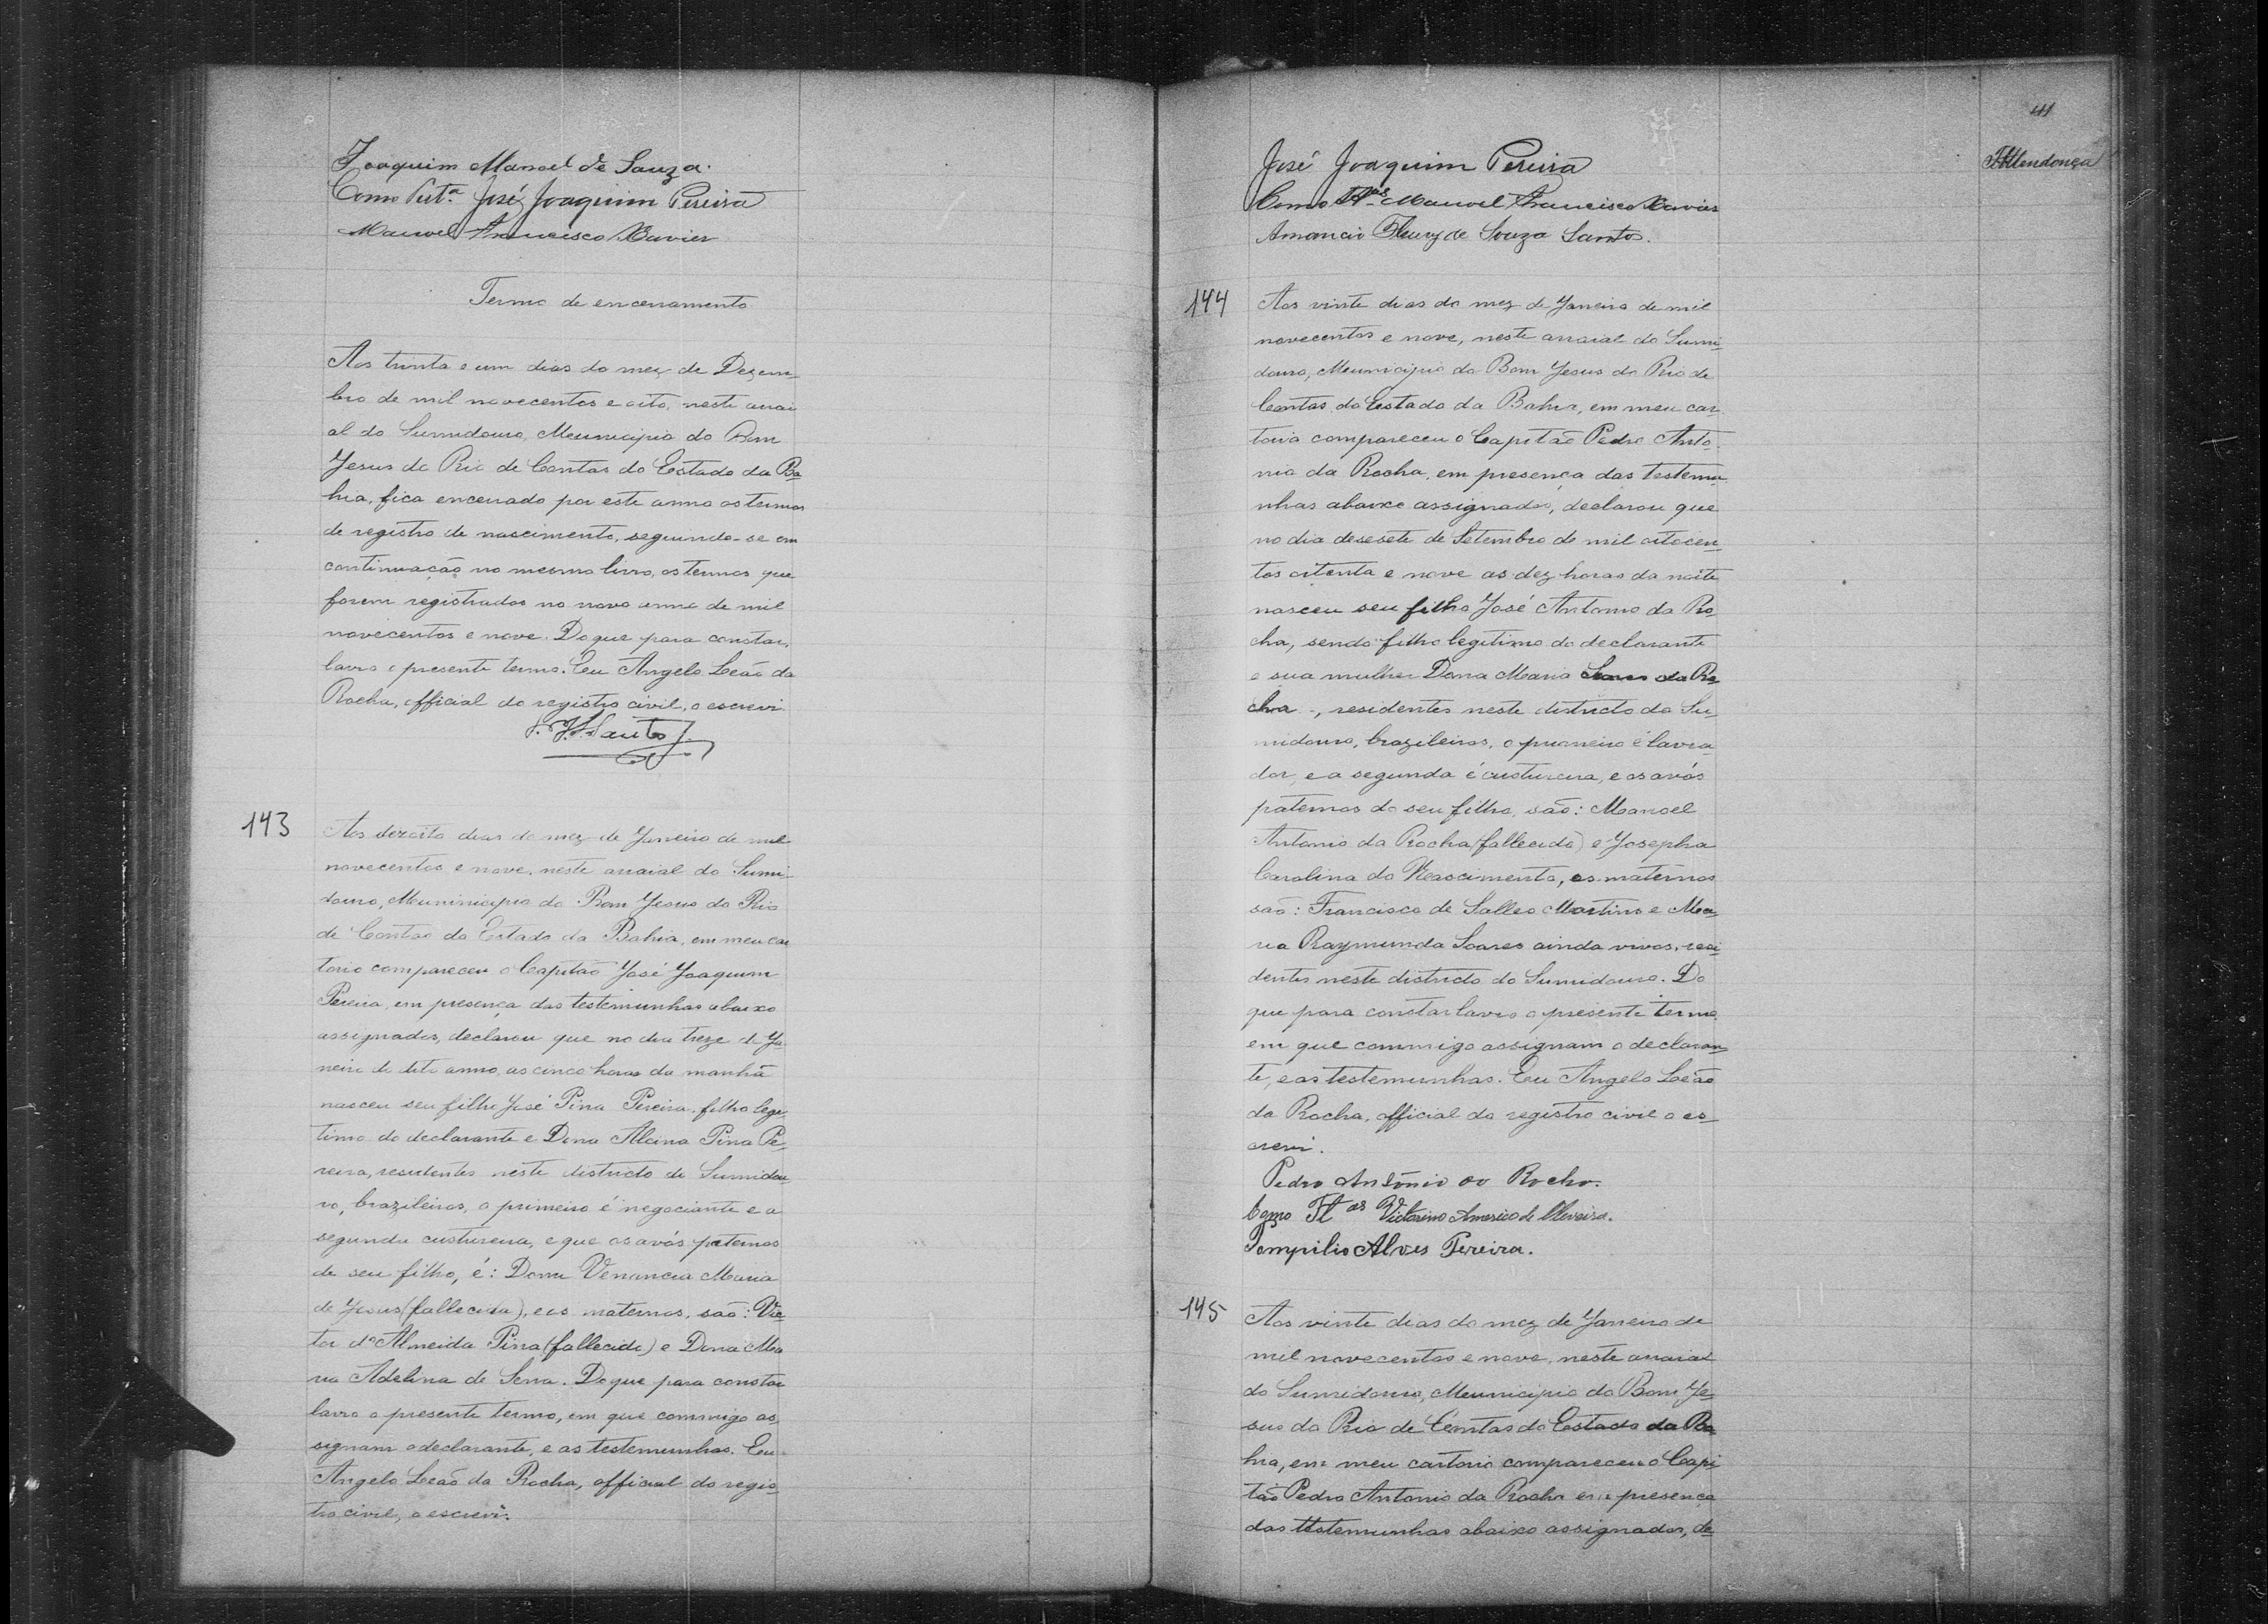 Joaquim Manoel de Souza.
Como Test.ª José Joaquim Pereira
Manoel Francisco Xavier
Termo de encerramento
Aos trinta e um dias do mez de Dezem-
bro de mil novecentos e oito, neste arrai
al do Sumidouro, Municipio do Bom
Jesus do Rio de Contas do Estado da Ba-
hia, fica encerrado por este anno os termos
de registro de nascimento, seguindo-se em
continuação no mesmo livro, os termos que
forem registrados no novo anno de mil
novecentos e nove. Do que para constar,
lavro o presente termo. Eu Angelo Leão da
Rocha, official do registro civil, o escrevi.
Santos
143
Aos dezoito dias do mez de Janeiro de mil
novecentos e nove, neste arraial do Sumi-
douro, Munincipio do Bom Jesus do Rio
de Contas do Estado da Bahia, em meu car
torio compareceu o Capitão José Joaquim
Pereira, em presença das testemunhas abaixo
assignados, declarou que no dia treze de Ja-
neiro do dito anno, as cinco horas da manhã
nasceu seu filho José Pina Pereira, filho legi-
timo do declarante e Dona Alcina Pina Pe-
reira, residentes neste districto do Sumidou-
ro, brazileiros, o primeiro é negociante e a
segunda custureira, e que os avós paternos
de seu filho, é: Dona Venancia Maria
de Jesus (fallecida), e os maternos, são: Vic-
tor d'Almeida Pina (fallecido) e Dona Ma
ria Adelina de Sena. Do que para constar
lavro o presente termo, em que commigo as-
signam o declarante, e as testemunhas. Eu
Angelo Leão da Rocha, official do regis-
tro civil, o escrevi.
111
Mendonça
José Joaquim Pereira
Como Tt.as Manoel Francisco Xavier
Amancio Fleury de Souza Santos.
144
Aos vinte dias do mez de Janeiro de mil
novecentos e nove, neste arraial do Sumi-
douro, Municipio do Bom Jesus do Rio de
Contas do Estado da Bahia, em meu car-
torio compareceu o Capitão Pedro Anto-
nio da Rocha, em presença das testemu-
nhas abaixo assignados, declarou que
no dia desesete de Setembro de mil oitocen-
tos oitenta e nove as dez horas da noite
nasceu seu filho José Antonio da Ro-
cha, sendo filho legitimo do declarante
e sua mulher Dona Maria Soares da Ro-
cha, residentes neste districto do Su-
midouro, brazileiros, o primeiro é lavra-
dor, e a segunda é custureira, e os avós
paternos do seu filho, são: Manoel
Antonio da Rocha (fallecido) e Josepha
Carolina do Nascimento, os maternos
são: Francisco de Salles Martins e Ma-
ria Raymunda Soares ainda vivos, resi-
dentes neste districto do Sumidouro. Do
que para constar lavro o presente termo
em que commigo assignam o declaran-
te, e as testemunhas. Eu Angelo Leão
da Rocha, official do registro civil o es-
crevi.
Pedro Antônio da Rocha.
Como Tt as Victorino Americo de Oliveira.
Pompilio Alves Pereira.
145
Aos vinte dias do mez de Janeiro de
mil novecentos e nove, neste arraial
do Sumidouro, Municipio do Bom Je-
sus do Rio de Contas do Estado da Ba-
hia, em meu cartorio compareceu o Capi
tão Pedro Antonio da Rocha em presença
das testemunhas abaixo assignados, de-